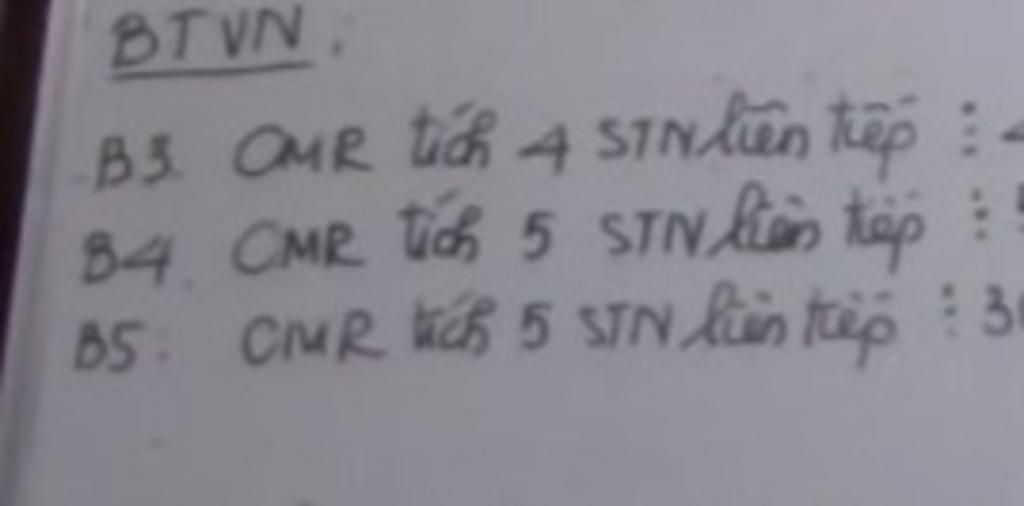 BTVN:
B3. CMR tích 4 STN liên tiếp ⋮
B4. CMR tích 5 STN liên tiếp ⋮
B5: CMR tích 5 STN liên tiếp ⋮